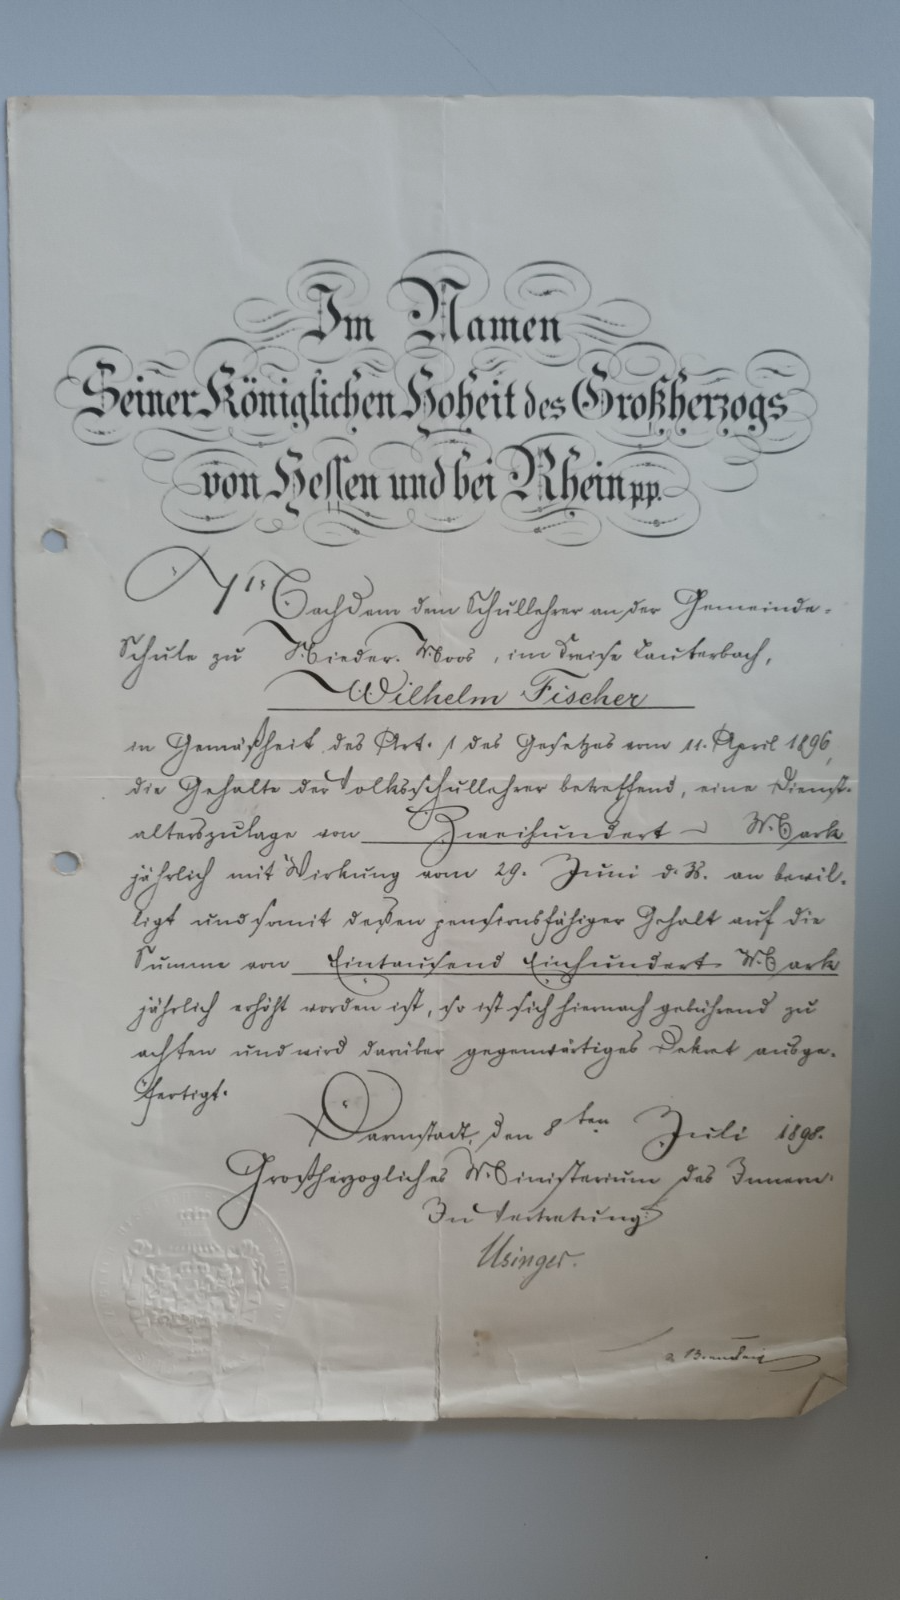 Im Namen
Seiner Königlichen Hoheit des Großherzogs
von Hessen und bei Rhein pp.
Nachdem dem Schullehrer an der Gemeinde-
Schule zu Nieder-Moos, im Kreise Lauterbach,
Wilhelm Fischer
in Gemäßheit des Art. 1 des Gesetzes vom 11. April 1896,
die Gehalte der Volksschullehrer betreffend, eine Dienst-
alterszulage von Zweihundert Mark
jährlich mit Wirkung vom 29. Juni d. Js. an bewil-
ligt und somit dessen pensionsfähiger Gehalt auf die
Summe von Eintausend Einhundert Mark
jährlich erhöht worden ist, so ist sich hiernach gebührend zu
achten und wird darüber gegenwärtiges Dekret ausge-
fertigt.
Darmstadt, den 8ten Juli 1898.
Großherzogliches Ministerium des Innern.
In Vertretung:
Usinger.